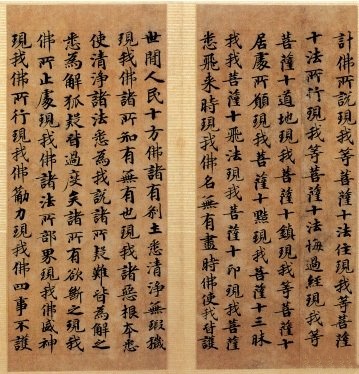 計佛所説現我等菩薩十法住現我等菩薩
十法所行現我等菩薩十法悔過經現我等
菩薩十道地現我菩薩十鎮現我等菩薩十
居處所願現我菩薩十黠現我菩薩十三昧
我我菩薩十飛法現我菩薩十印現我菩薩
悉飛来時現我佛名無有盡時佛使我皆護
世間人民十方佛諸有刹土悉清淨無瑕穢
現我佛諸所知有無有也現我諸惡根本悉
使清淨諸法悉為我說諸所疑難皆為解之
悉為解狐疑皆過度矣諸所有欲斷之現我
佛所止處現我佛諸法所部界現我佛威神
現我佛所行現我佛筋力現我佛四事不護